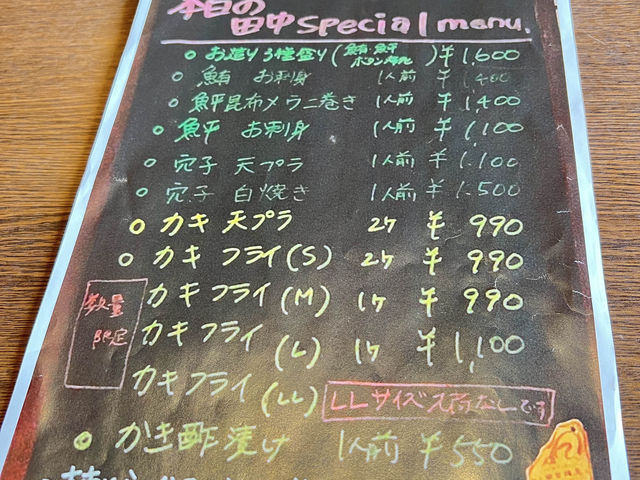 本日の田中special menu.
○ お造り3種盛り(鮪・鮃 ボタン海老)¥1,600
○ 鮪 お刺身 1人前 ¥1,400
○ 鮃昆布〆ウニ巻き 1人前 ¥1,400
○ 鮃 お刺身 1人前 ¥1,100
○ 穴子 天プラ 1人前 ¥1,100
○ 穴子 白焼き 1人前 ¥1,500
○ カキ 天プラ 2ケ ¥990
○ カキ フライ(S) 2ケ ¥990
数量限定
カキ フライ(M) 1ケ ¥990
カキ フライ(L) 1ケ ¥1,100
カキ フライ(LL) LLサイズ入荷なしです
○ かき酢漬け 1人前 ¥550